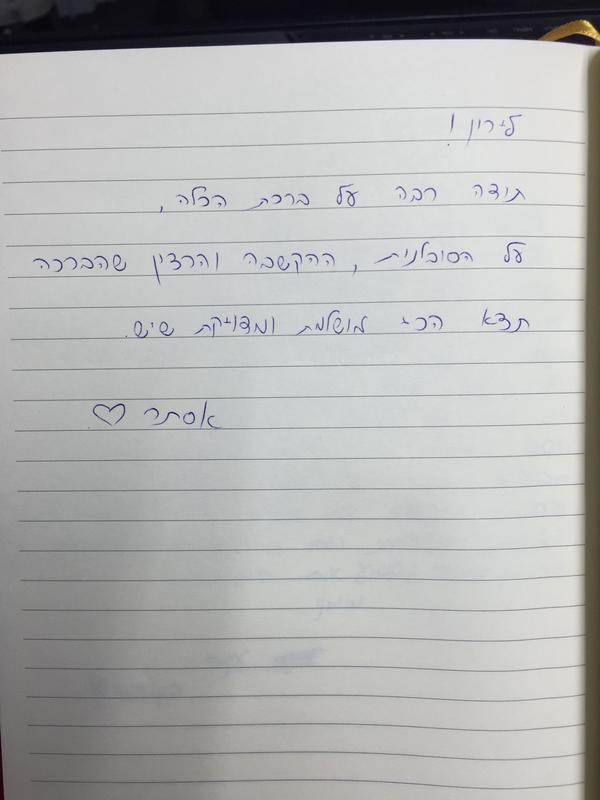 לירון !
תודה רבה על ברכת הכלה,
על הסובלנות, ההקשבה והרצון שהברכה
תצא הכי מושלמת ומדויקת שיש.
אסתר ♡